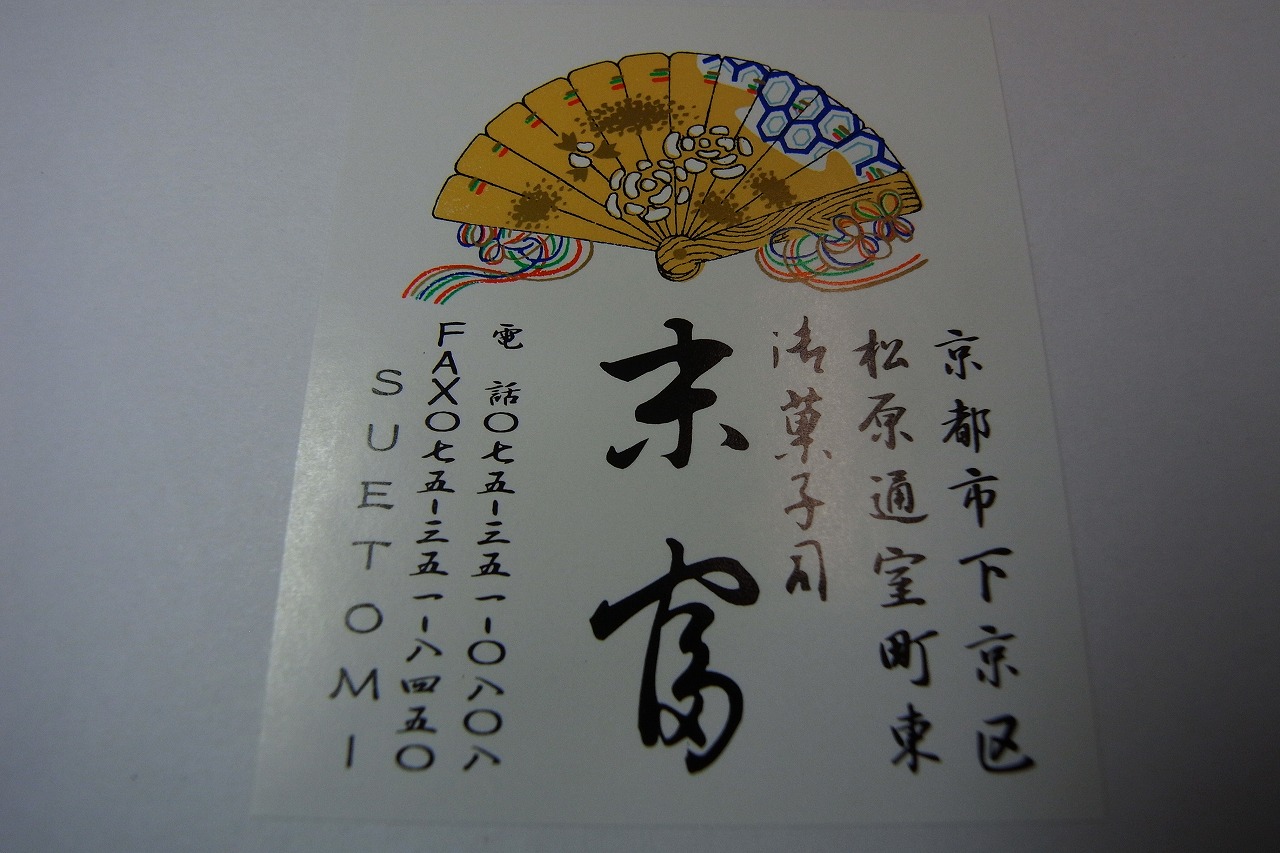 京都市下京区
松原通室町東
御菓子司
末富
電話〇七五-三五一-〇八〇八
FAX〇七五-三五一-八四五〇
SUETOMI